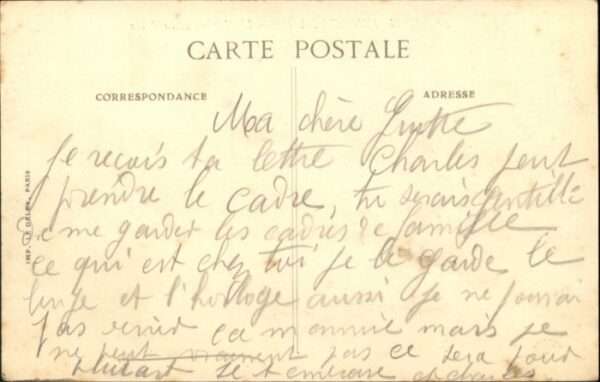 CARTE POSTALE
CORRESPONDANCE
ADRESSE
Ma chère
Je reçois ta lettre Charles peut
prendre le cadre, tu serais gentille
de me garder les cadres de famille
ce qui est chez toi je le garde le
linge et l'horloge aussi je ne pourrai
pas venir ça m'ennuie mais je
ne peut vraiment pas ce sera pour
plutart je t'embrasse
IMP. LE DELEY, PARIS